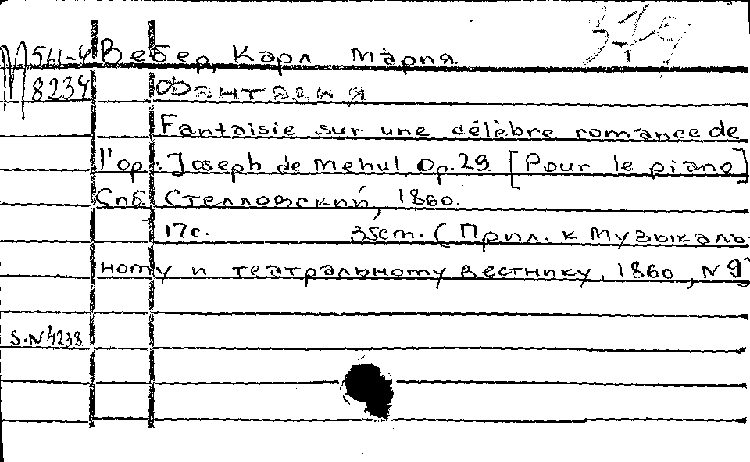 379
М 561-4 Вебер, Карл Мария
8234 Фантазия
Fantaisie sur une célèbre romance de
l'op. Joseph de Mehul Op. 28 [Pour le piano]
Спб Стелловский, 1860.
17с. 35cm. (Прил. к Музыкаль
ному и театральному вестнику, 1860, N 9
S.N 4238